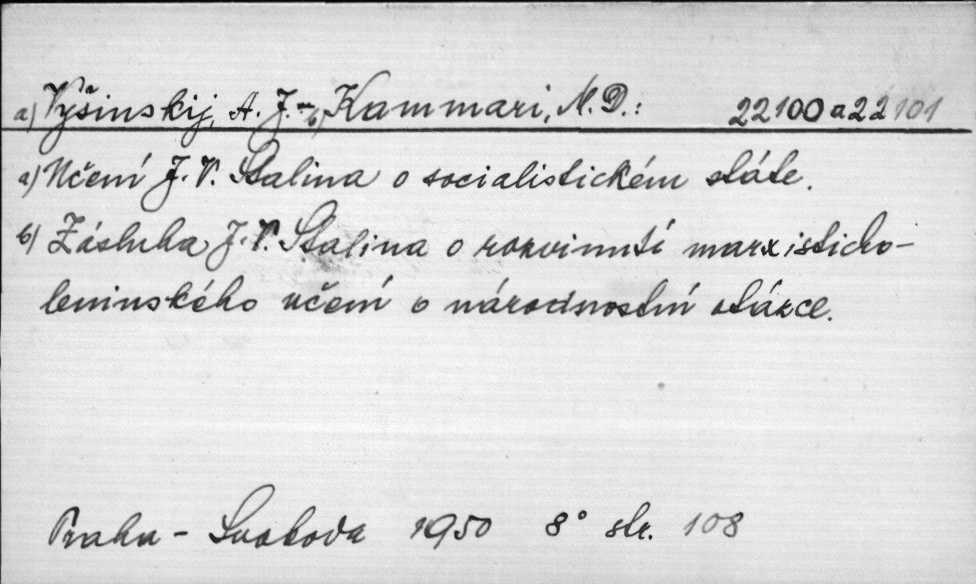 a) Vyšinskij, A. J. - b) Kammari, M. D.: 22100 a 22101
a) Učení J. V. Stalina o socialistickém státe.
b) Zásluha J. V. Stalina o rozvinutí marxisticko-
leninského učení o národnostní otázce.
Praha - Svoboda 1950 8° str. 108